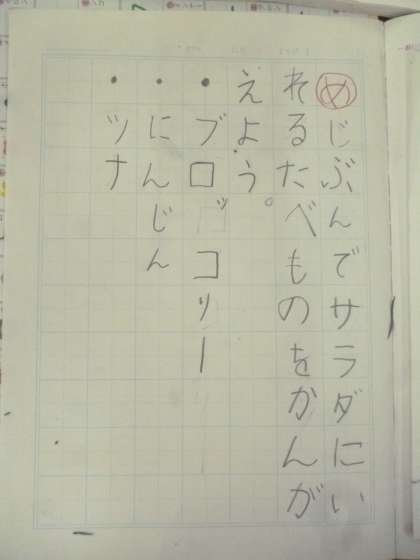 めじぶんでサラダにい
れるたべものをかんが
えよう。
・ブロッコリー
・にんじん
・ツナ